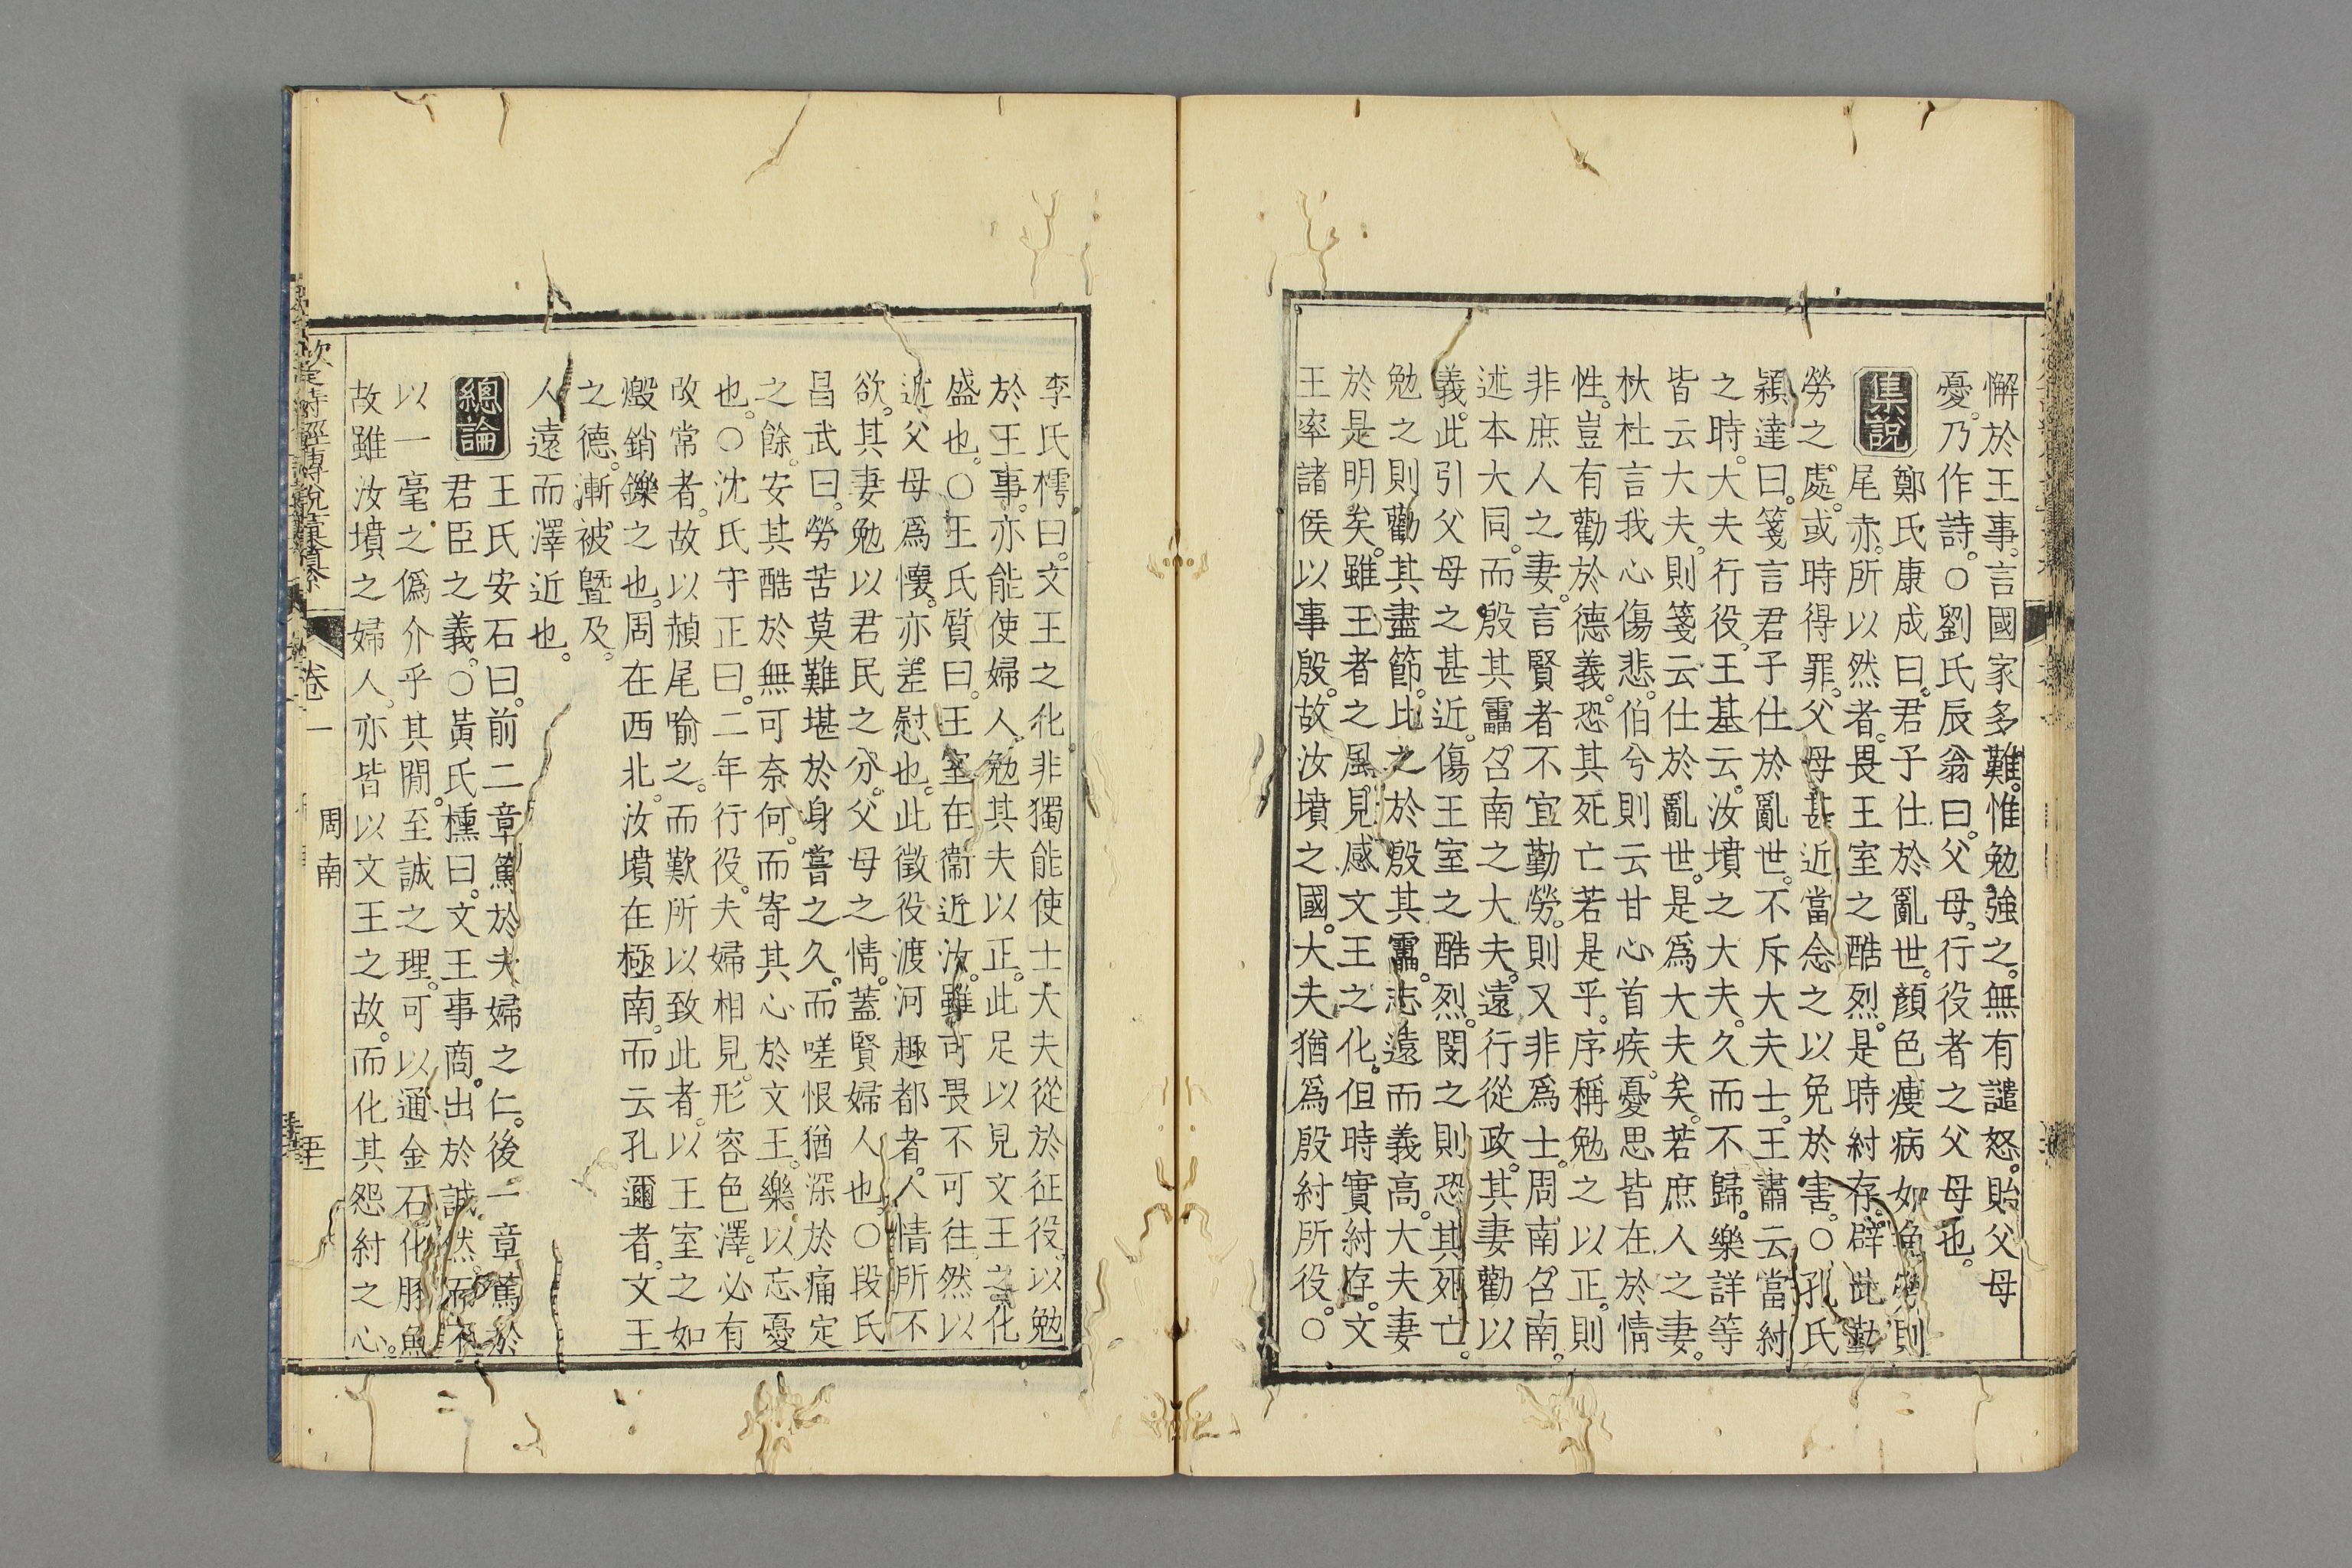 懈於王事言國家多難惟勉強之無有譴怒貽父母
憂乃作詩〇劉氏辰翁曰父母行役者之父母也
集說
鄭氏康成曰君子仕於亂世顏色瘦病如魚勞則
尾赤所以然者畏王室之酷烈是時紂存辟此勤
勞之處或時得罪父母甚近當念之以免於害〇孔氏
潁達曰箋言君子仕於亂世不斥大夫士王肅云當紂
之時大夫行役王基云汝墳之大夫久而不歸樂詳等
皆云大夫則箋云仕於亂世是爲大夫矣若庶人之妻
杕杜言我心傷悲伯兮則云甘心首疾憂思皆在於情
性豈有勸於德義恐其死亡若是乎序稱勉之以正則
非庶人之妻言賢者不宜勤勞則又非爲士周南召南
述本大同而殷其靁召南之大夫遠行從政其妻勸以
義此引父母之甚近傷王室之酷烈閔之則恐其死亡
勉之則勸其盡節比之於殷其靁志遠而義高大夫妻
於是明矣雖王者之風見感文王之化但時實紂存文
王率諸侯以事殷故汝墳之國大夫猶爲殷紂所役〇
李氏樗曰文王之化非獨能使士大夫從於征役以勉
於王事亦能使婦人勉其夫以正此足以見文王之化
盛也〇王氏質曰王室在衞近汝雖可畏不可往然以
近父母爲懷亦差慰也此徵役渡河趣都者人情所不
欲其妻勉以君民之分父母之情蓋賢婦人也〇段氏
昌武曰勞苦莫難堪於身嘗之久而嗟恨猶深於痛定
之餘安其酷於無可奈何而寄其心於文王樂以忘憂
也〇沈氏守正曰二年行役夫婦相見形容色澤必有
改常者故以赬尾喻之而歎所以致此者以王室之如
燬銷鑠之也周在西北汝墳在極南而云孔邇者文王
之德漸被曁及
人遠而澤近也
總論
王氏安石曰前二章篤於夫婦之仁後一章篤於
君臣之義〇黃氏櫄曰文王事商出於誠然而不
以一毫之僞介乎其閒至誠之理可以通金石化豚魚
故雖汝墳之婦人亦皆以文王之故而化其怨紂之心
欽定詩經傳說彙纂
卷一
周南